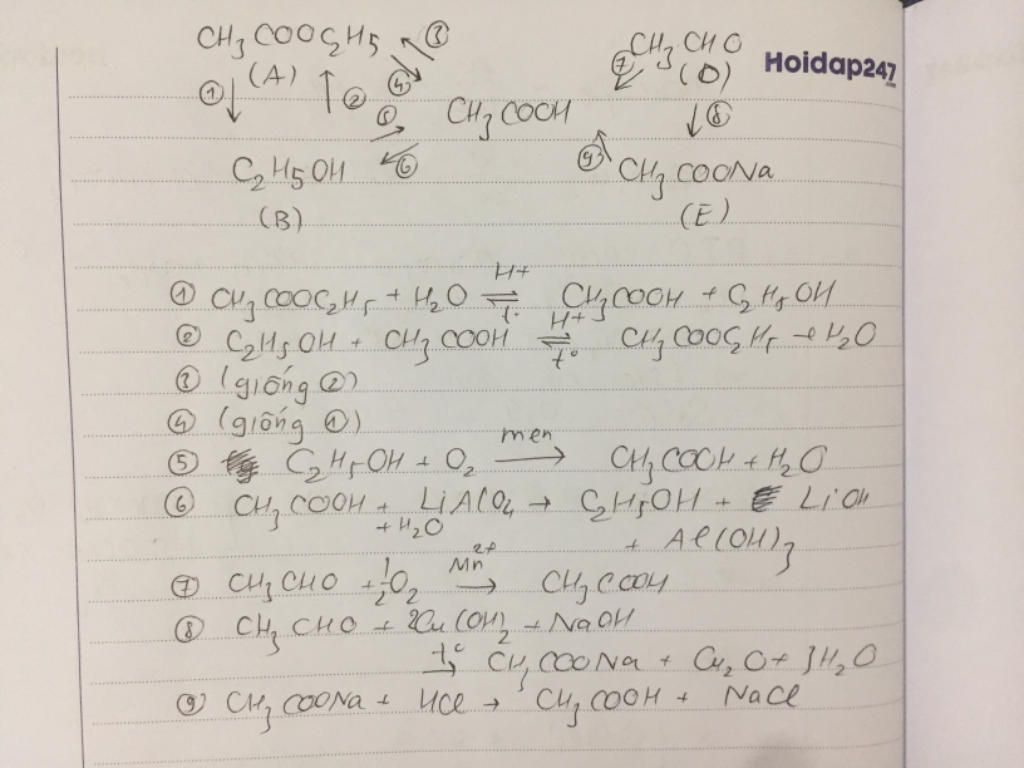 CH3COOC2H5 ③ CH3CHO
(A) ④ ⑦ (D) Hoidap247
① ② ⑤ CH3COOH ⑧
C2H5OH ⑥ ⑨ CH3COONa
(B) (E)
① CH3COOC2H5 + H2O ⇌ H+ t° CH3COOH + C2H5OH
② C2H5OH + CH3COOH ⇌ H+ t° CH3COOC2H5 + H2O
③ (giống ②)
④ (giống ①)
⑤ C2H5OH + O2 men → CH3COOH + H2O
⑥ CH3COOH + LiAlO4 → C2H5OH + LiOH
+ H2O + Al(OH)3
⑦ CH3CHO + 1/2 O2 Mn2+ → CH3COOH
⑧ CH3CHO + 2Cu(OH)2 + NaOH
t° → CH3COONa + Cu2O + 3H2O
⑨ CH3COONa + HCl → CH3COOH + NaCl